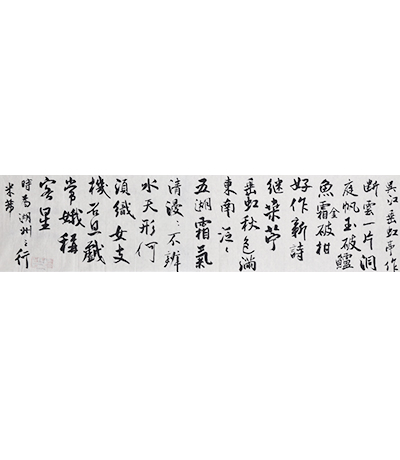 吴江垂虹亭作
断雲一片洞
庭帆玉破鱸
魚霜金破柑
好作新詩
继桑苧
垂虹秋色滿
東南泛〻
五湖霜氣
清漫〻不辨
水天形何
須織女支
機石且戲
常娥稱
客星
時為湖州之行
米芾